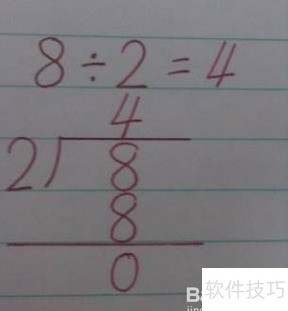 8÷2=4
4
2)8
8
0
Ba
jing
软件技巧